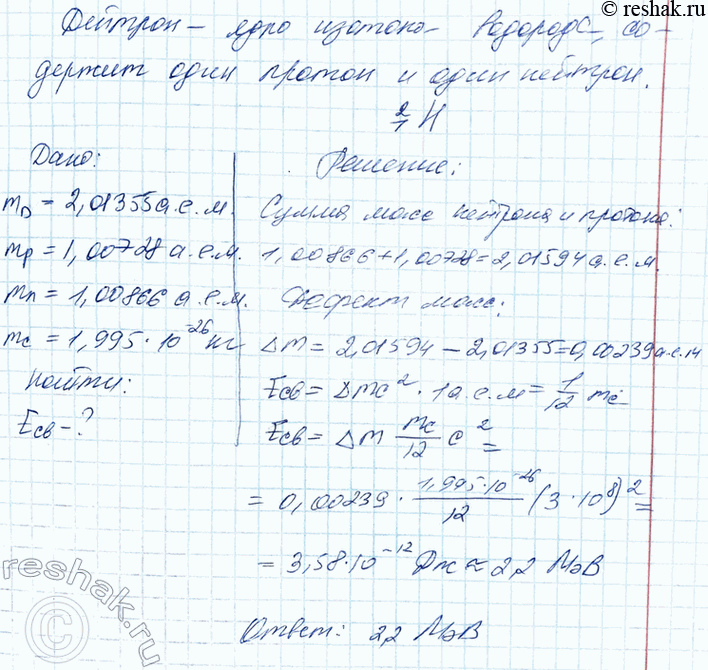 © reshak.ru
Дейтрон – ядро изотопа водорода, со-
держит один протон и один нейтрон.
²₁H
Дано:
m_D = 2,01355 а.е.м.
m_p = 1,00728 а.е.м.
m_n = 1,00866 а.е.м.
m_c = 1,995·10⁻²⁶ кг
Найти:
E_св – ?
Решение:
Сумма масс нейтрона и протона:
1,00866+1,00728=2,01594 а.е.м.
Дефект масс:
Δm = 2,01594 – 2,01355=0,00239 а.е.м
E_св = Δmc² · 1а.е.м = 1/12 m_c
E_св = Δm m_c/12 c² =
= 0,00239 · 1,995·10⁻²⁶/12 (3·10⁸)² =
= 3,58·10⁻¹² Дж ≈ 2,2 МэВ
Ответ: 2,2 МэВ
reshak.ru
©